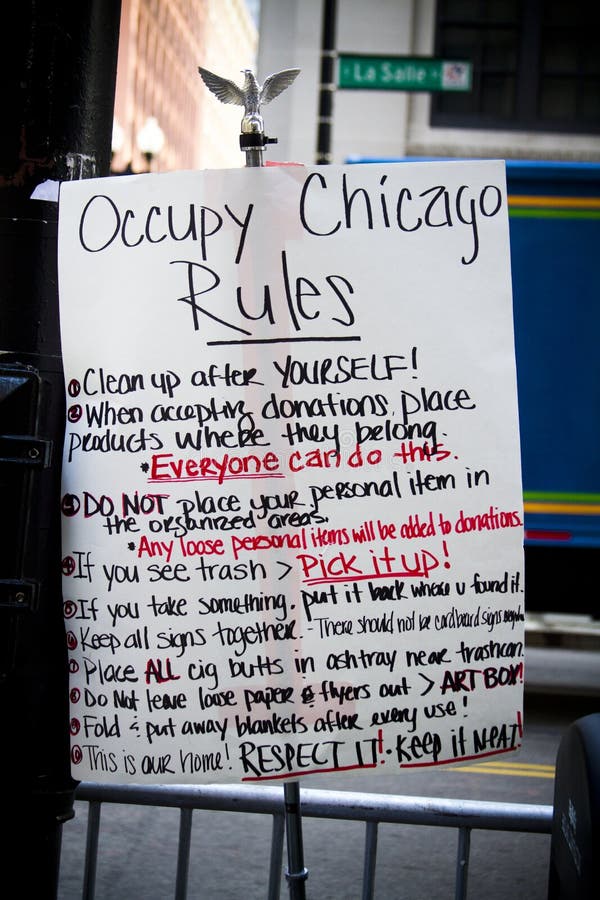 La Salle
Occupy Chicago
Rules
① Clean up after YOURSELF!
② When accepting donations, place
products where they belong.
*Everyone can do this.
③ DO NOT place your personal item in
the organized areas.
*Any loose personal items will be added to donations.
④ If you see trash > Pick it up!
⑤ If you take something, put it back where u found it.
⑥ Keep all signs together. - There should not be cardboard signs everywhere
⑦ Place ALL cig butts in ashtray near trashcan.
⑧ Do Not leave loose paper & flyers out > ART BOX!
⑨ Fold & put away blankets after every use!
⑩ This is our home! RESPECT IT! · Keep it NEAT!